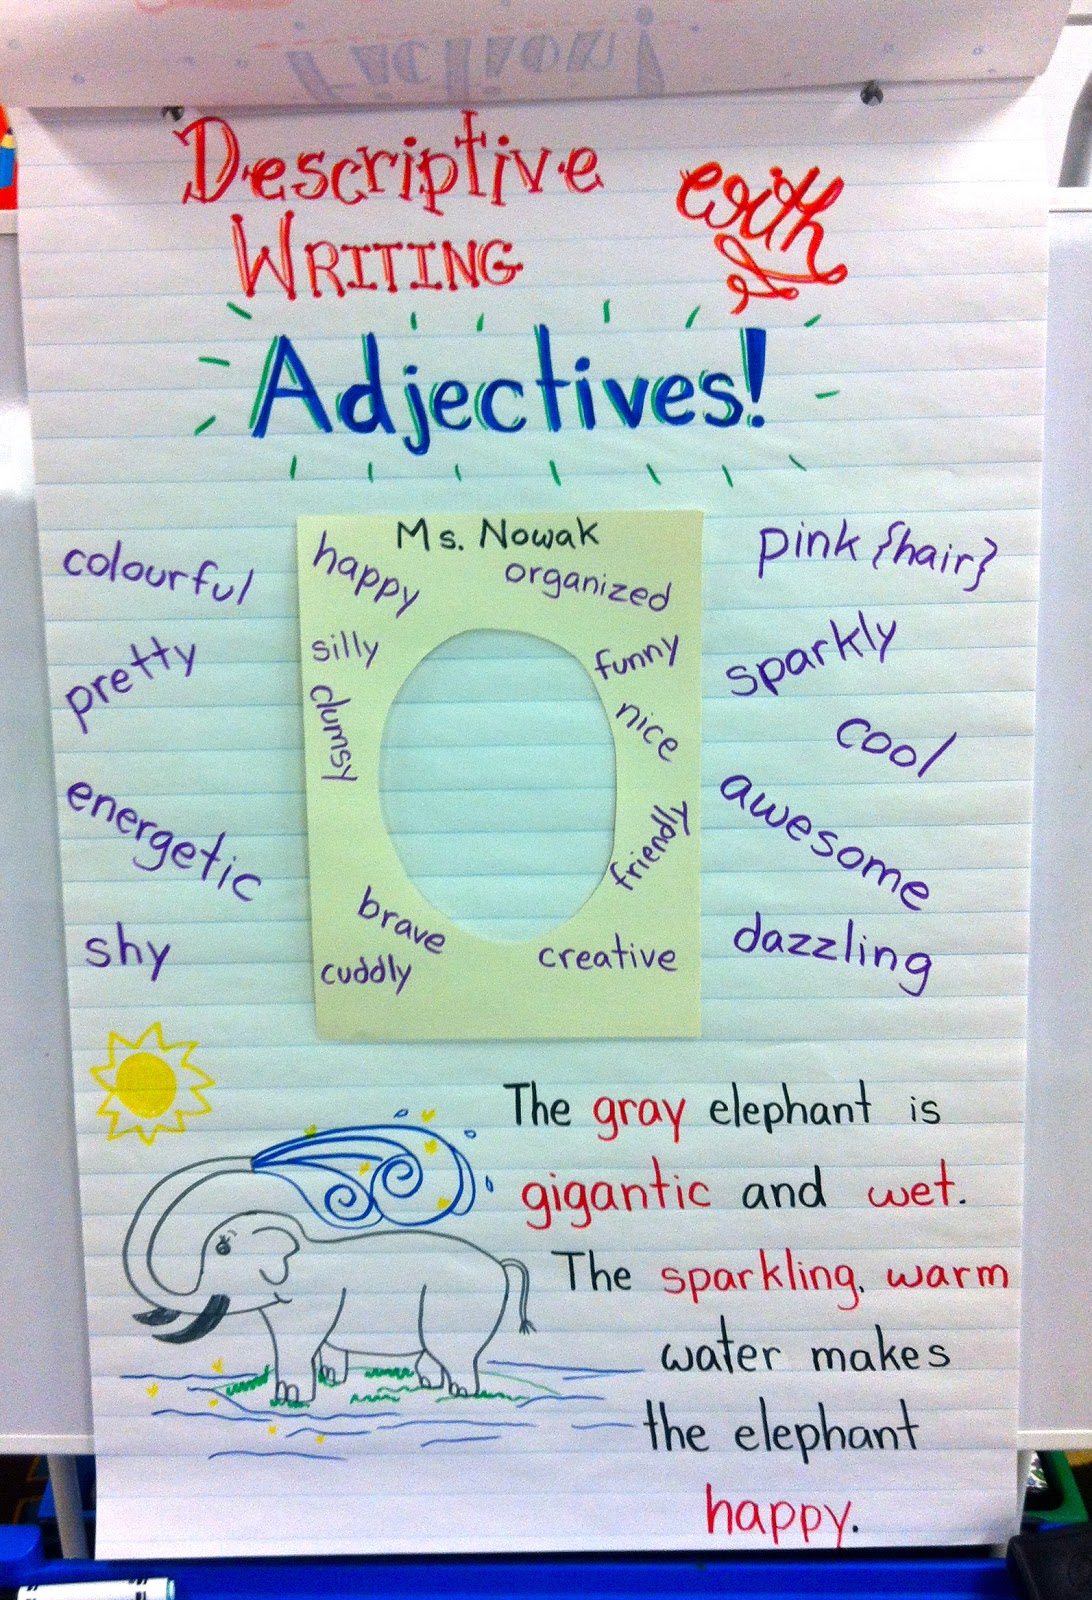 Fiction!
Descriptive with
WRITING
Adjectives!
Ms. Nowak
happy
organized
silly
funny
clumsy
nice
friendly
brave
cuddly
creative
colourful
pretty
energetic
shy
pink {hair}
sparkly
cool
awesome
dazzling
The gray elephant is
gigantic and wet.
The sparkling, warm
water makes
the elephant
happy.